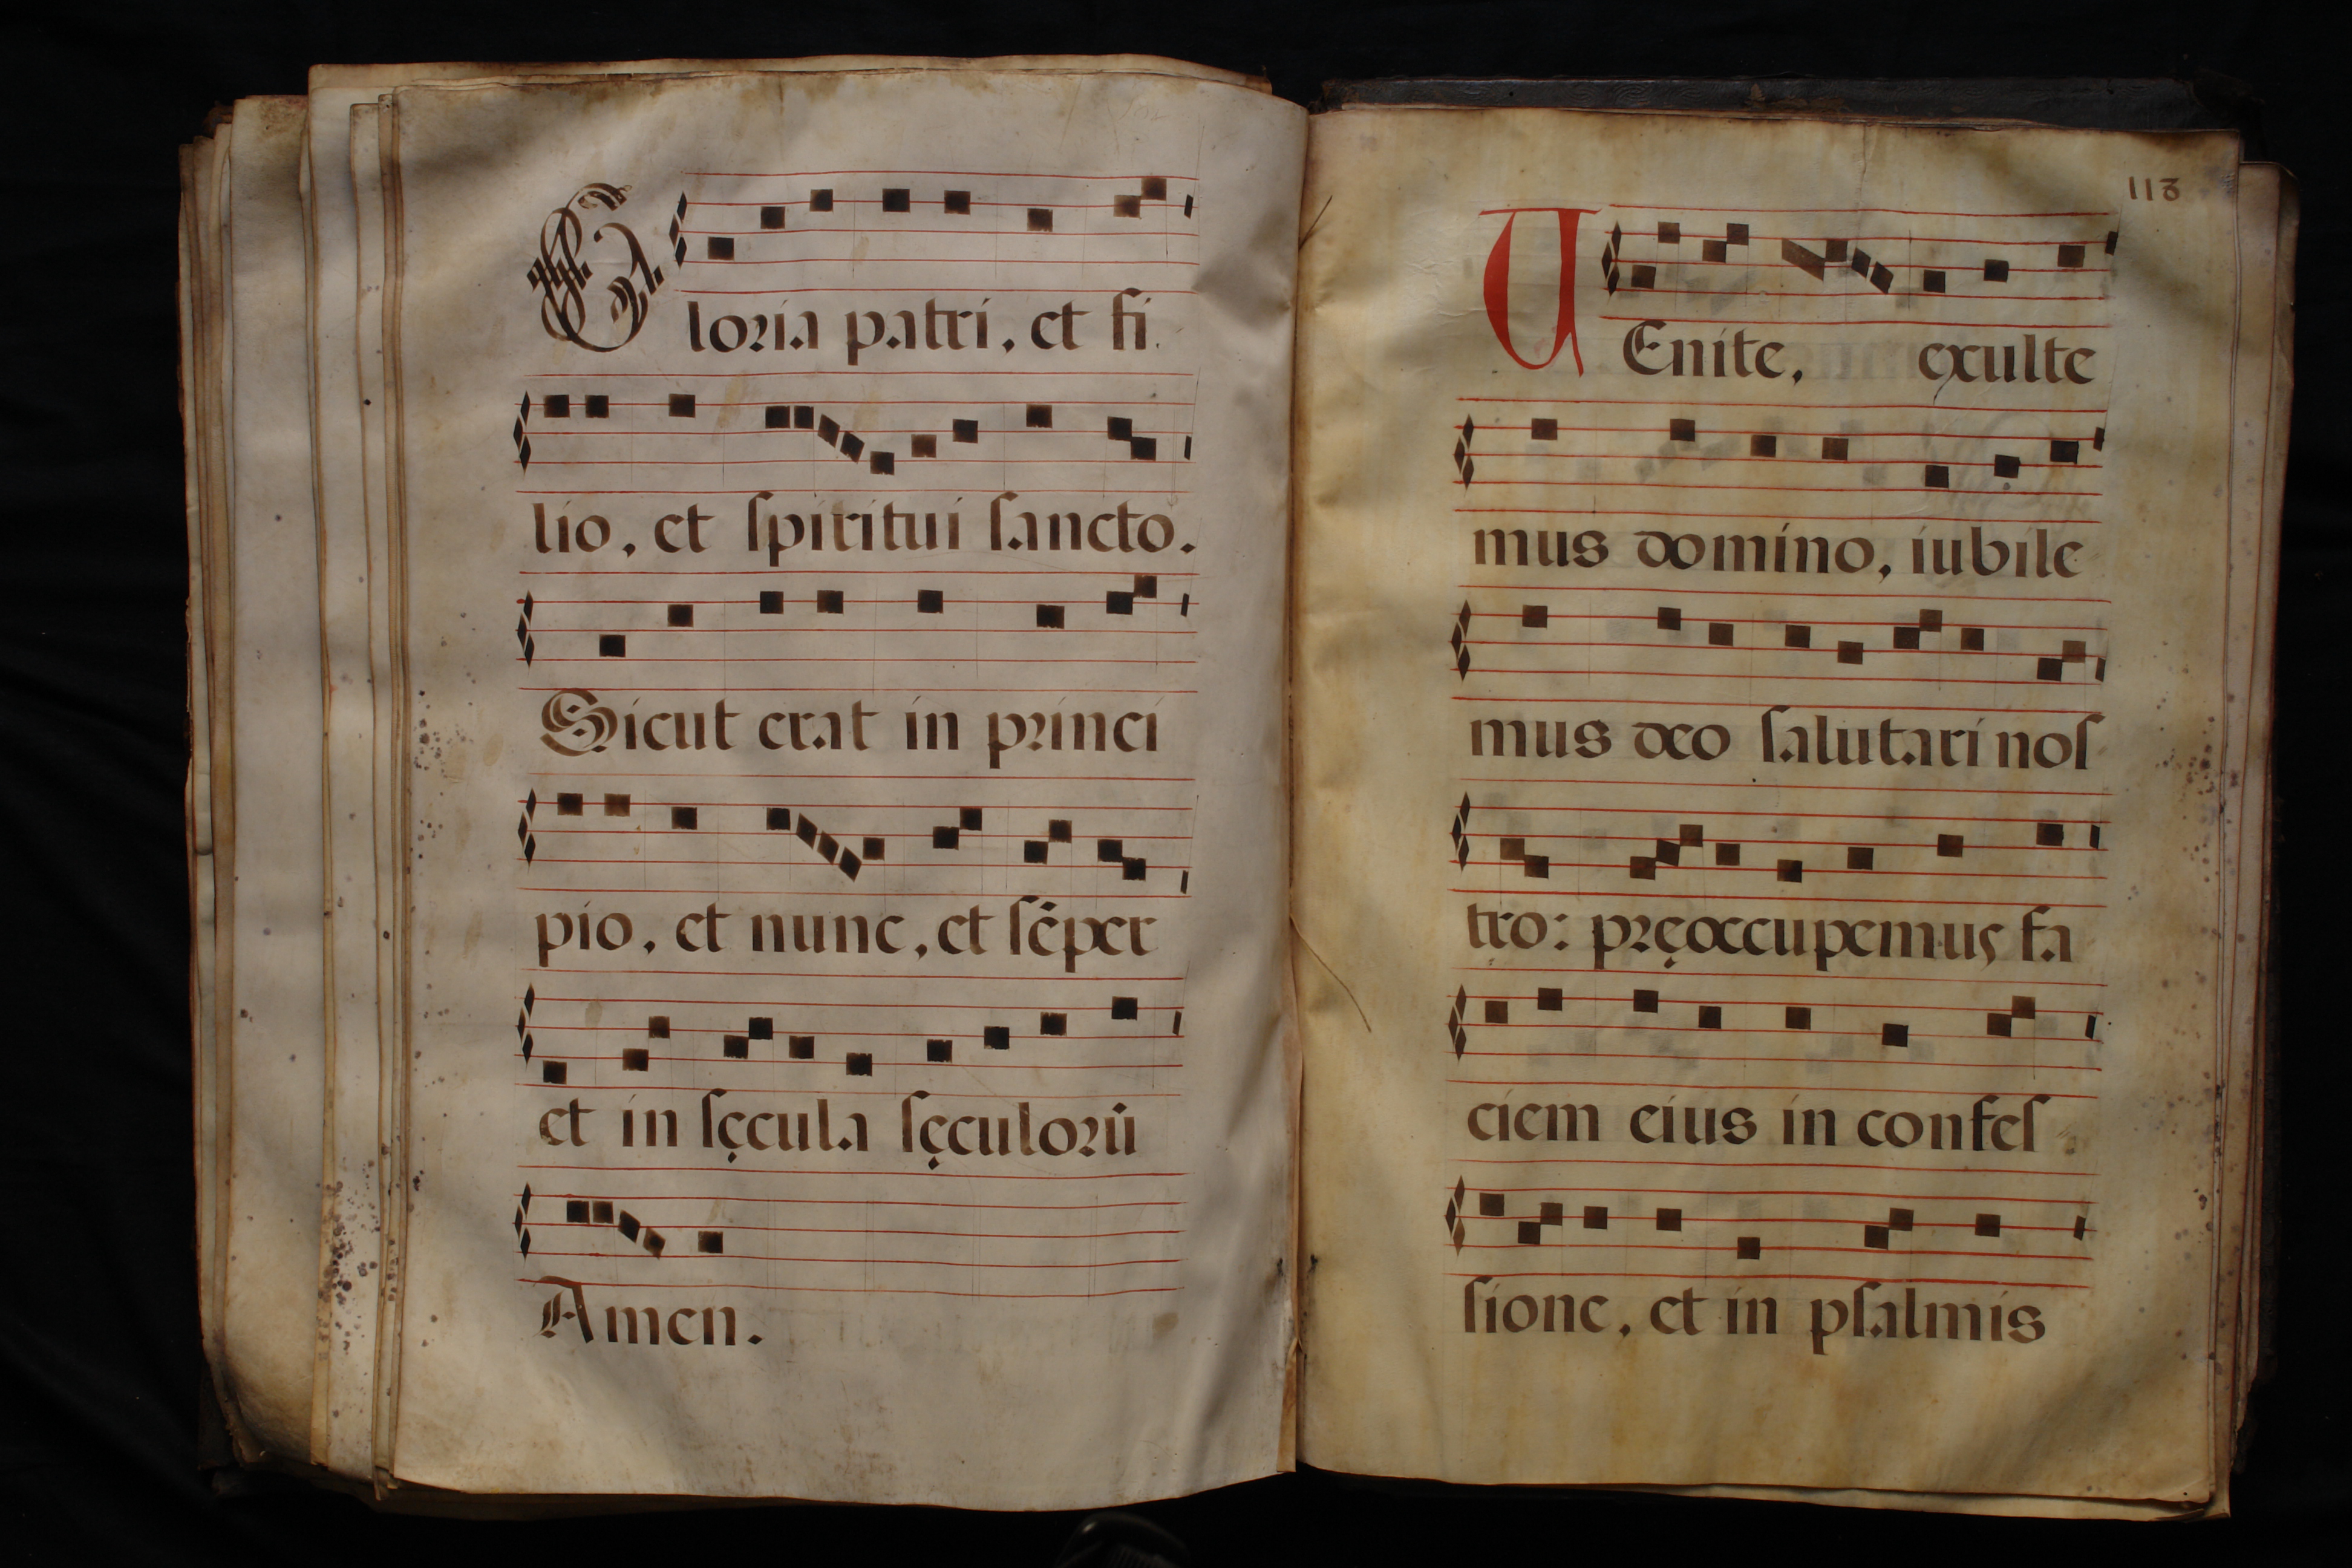 Gloria patri, et fi
lio, et ſpiritui ſancto.
Sicut erat in princi
pio, et nunc, et ſẽper
et in ſęcula ſęculorũ
Amen.
113
VEnite, exulte
mus domino, iubile
mus deo ſalutari noſ
tro: pręoccupemus fa
ciem eius in confeſ
ſione, et in pſalmis